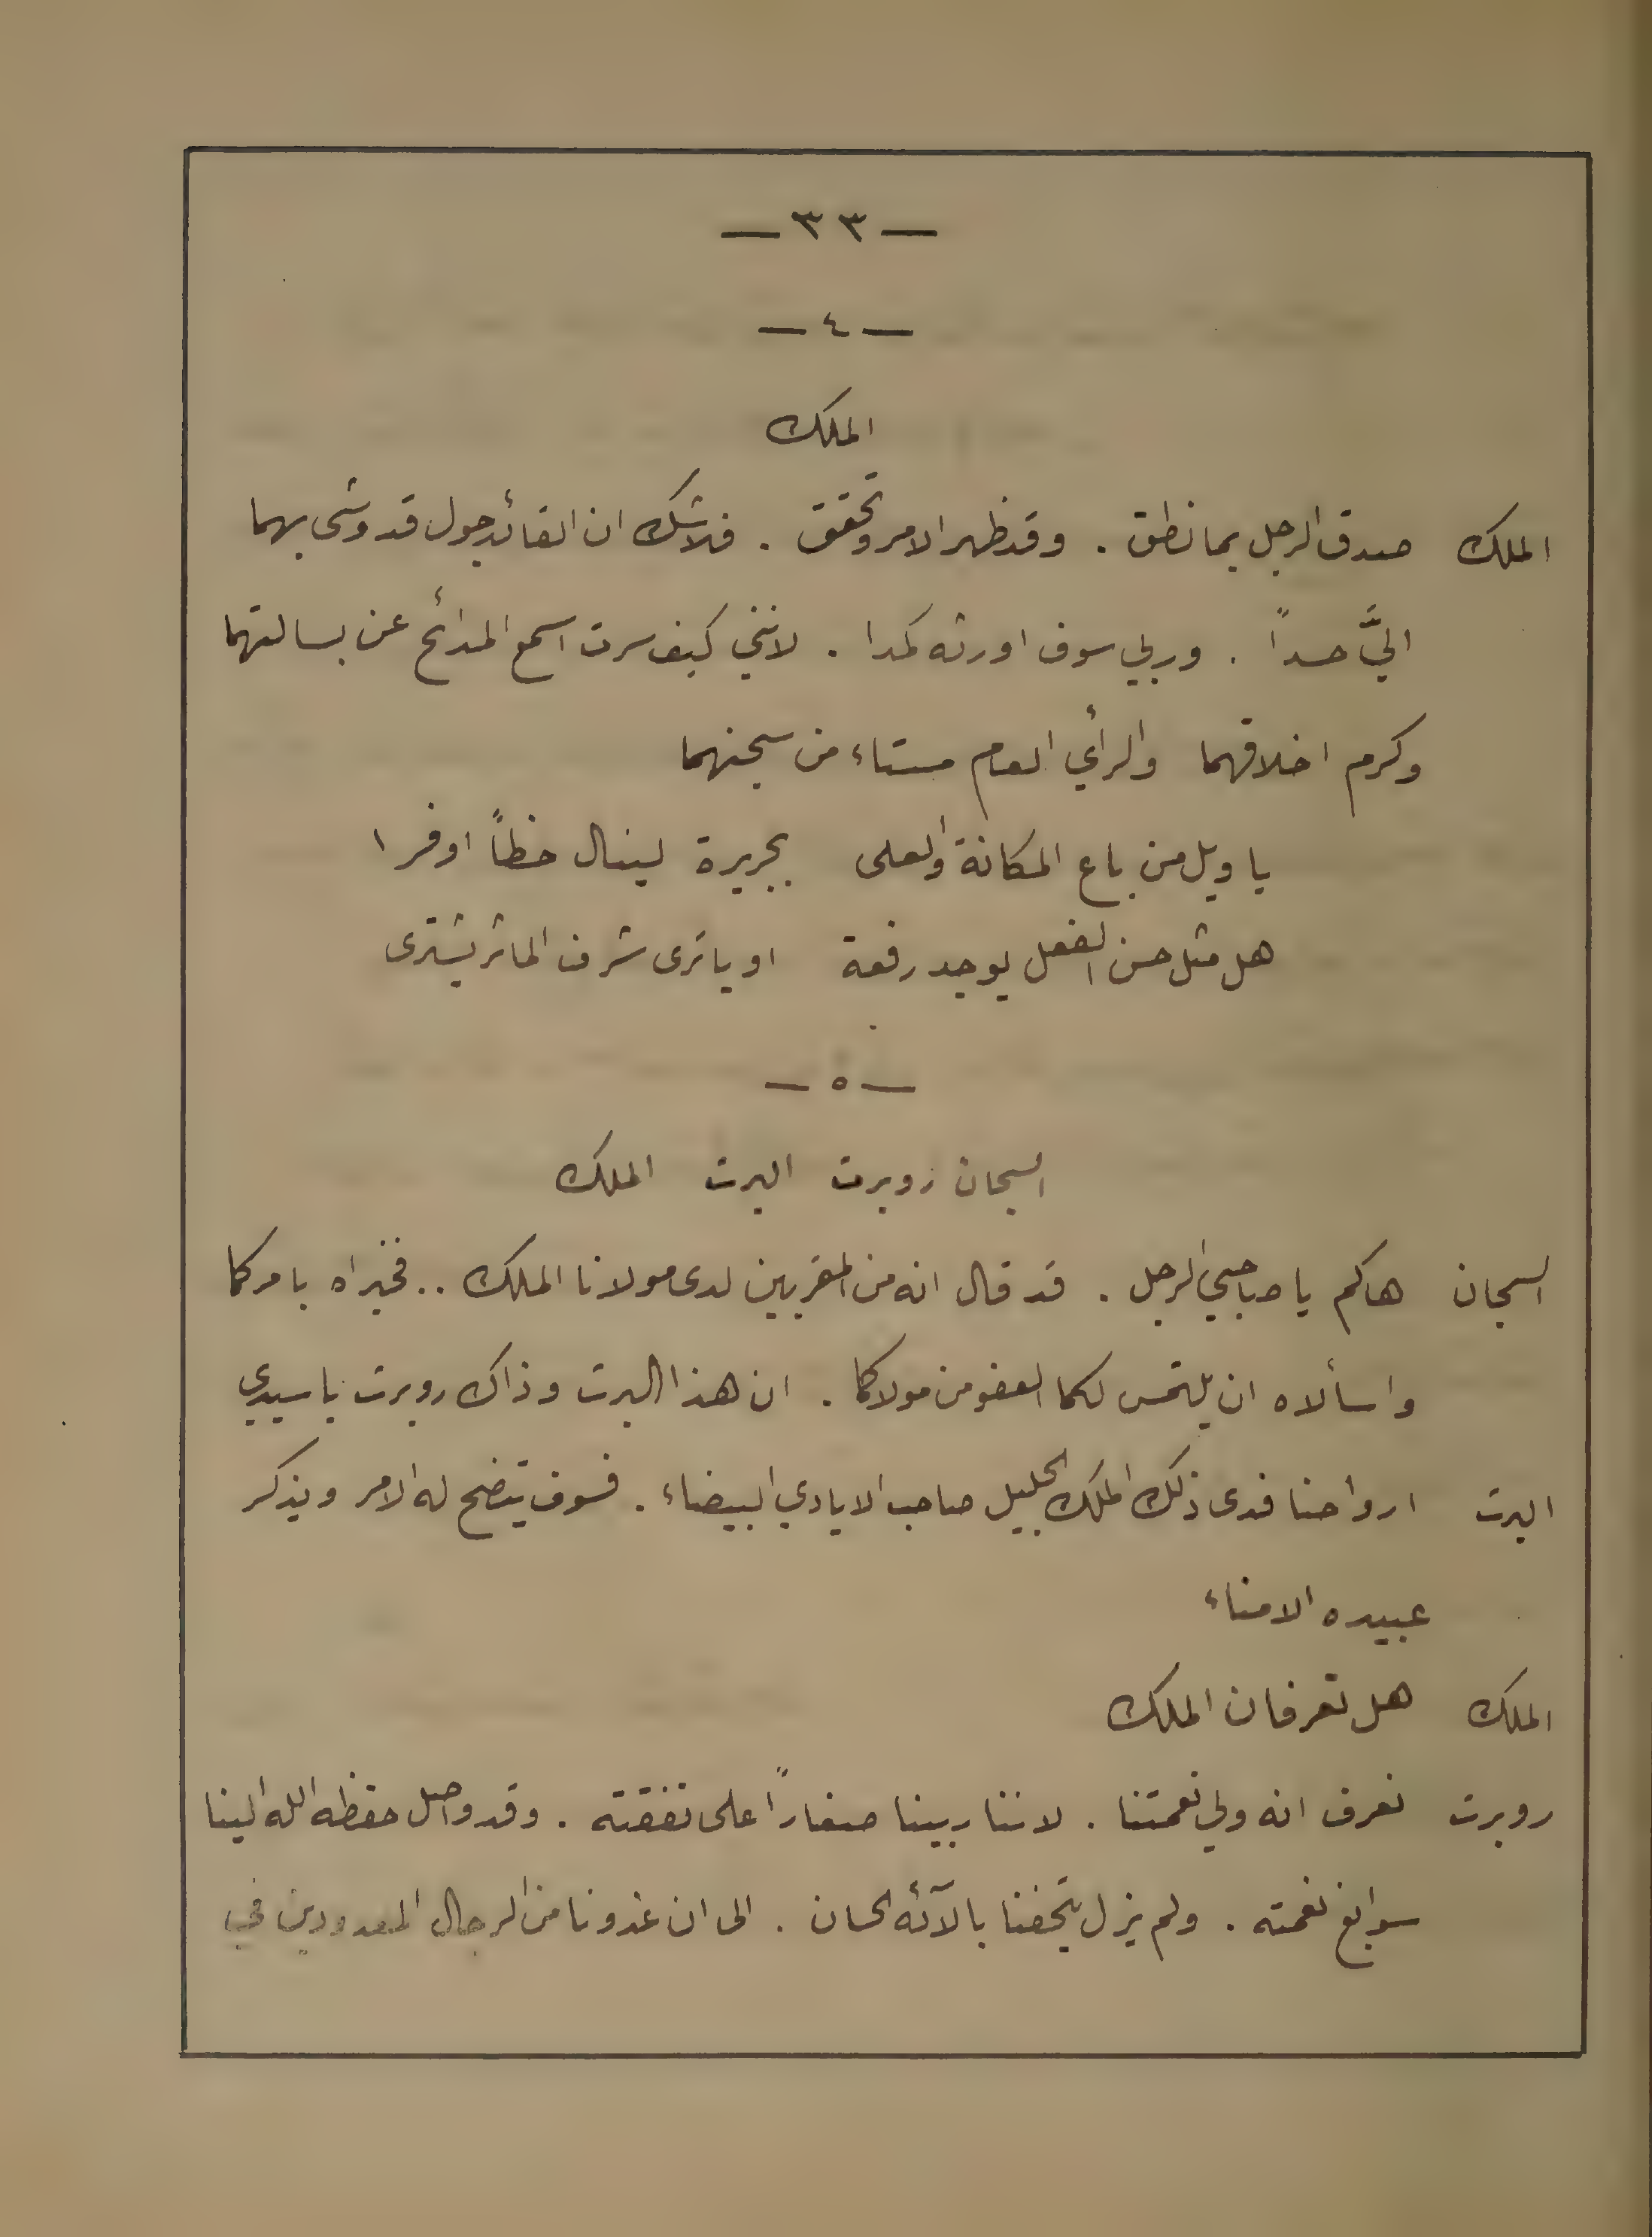 — ٣٣ —
— ٤ —
الملك
الملك صدق الرجل بما نطق . وقد ظهر الامر وتحقق . فلا شك ان القائد جول قد وشى بهما
اليَّ حسداً . وربي سوف اورثه كمدا . لانني كيف سرت اسمع المدائح عن بسالتهما
وكرم اخلاقهما والرأي العام مستاء من سجنهما
يا ويل من باع المكانة والعلى بجريرة لينال حظاً اوفرا
هل مثل حسن الفعل يوجد رفعة او يا ترى شرف المآثر يشترى
— ٥ —
السجان روبرت البرت الملك
السجان هاكم يا صاحبي الرجل . قد قال انه من المقربين لدى مولانا الملك .. فخبراه بامركما
واسألاه ان يلتمس لكما العفو من مولاكما . ان هذا البرت وذاك روبرت يا سيدي
البرت ارواحنا فدى ذلك الملك الجليل صاحب الايادي البيضاء . فسوف يتضح له الامر ويذكر
عبيده الامناء
الملك هل تعرفان الملك
روبرت نعرف انه ولي نعمتنا . لاننا ربينا صغاراً على نفقته . وقد واصل حفظه الله الينا
سوابغ نعمته . ولم يزل يتحفنا بالآئه الحسان . الى ان غدونا من الرجال المعدودين في